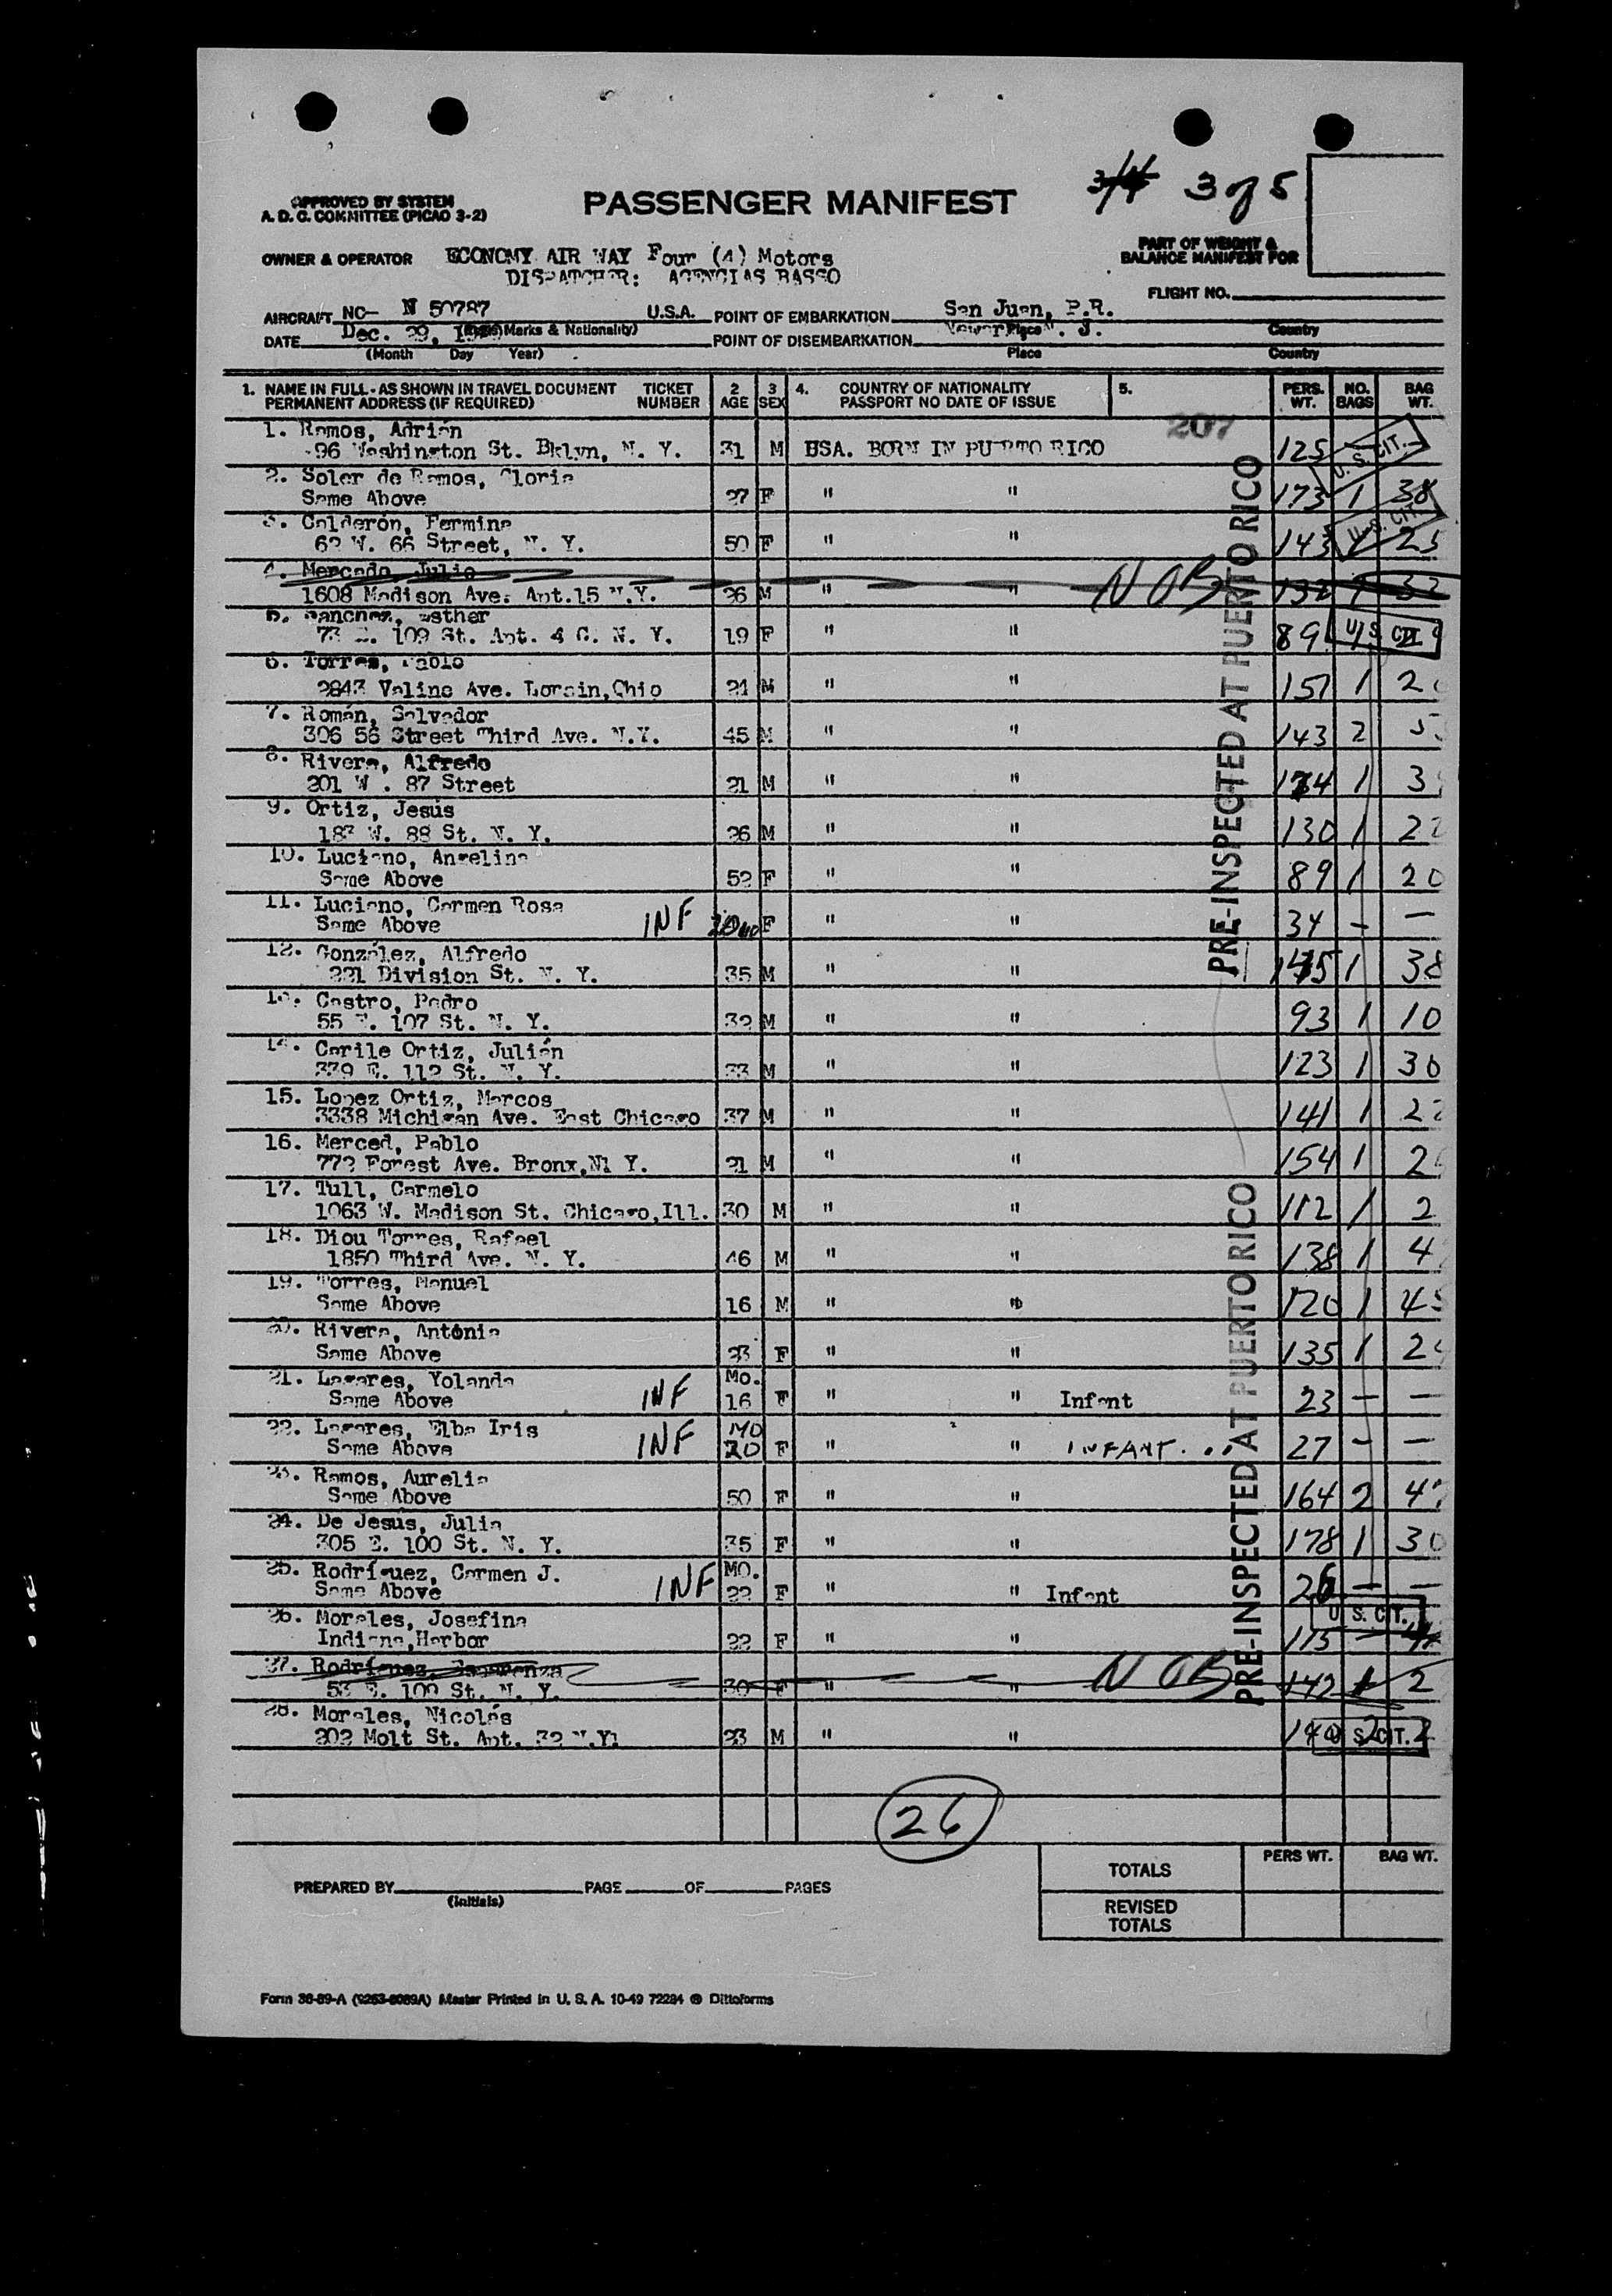 3/4 3 of 5
APPROVED BY SYSTEM
A. D. C. COMMITTEE (PICAO 3-2)
PASSENGER MANIFEST
PART OF WEIGHT &
BALANCE MANIFEST FOR
OWNER & OPERATOR ECONOMY AIR WAY Four (4) Motors
DISPATCHER: AGENCIAS BASSO
FLIGHT NO.
AIRCRAFT NC- N 50787 U.S.A. POINT OF EMBARKATION San Juan, P.R.
(Marks & Nationality) Place Country
DATE Dec. 29, POINT OF DISEMBARKATION N. J.
(Month Day Year) Place Country
1. NAME IN FULL - AS SHOWN IN TRAVEL DOCUMENT TICKET 2 3 4. COUNTRY OF NATIONALITY 5. PERS. NO. BAG
PERMANENT ADDRESS (IF REQUIRED) NUMBER AGE SEX PASSPORT NO DATE OF ISSUE WT. BAGS WT.
207
1. Ramos, Adrián
96 Washington St. Bklyn, N. Y. 31 M USA. BORN IN PUERTO RICO 125 - - U. S. CIT.
2. Soler de Ramos, Gloria
Same Above 27 F " " 173 1 38
3. Calderón, Fermina
62 W. 66 Street, N. Y. 50 F " " 143 1 25 U. S. CIT.
4. Mercado, Julio
1608 Madison Ave. Apt.15 N.Y. 26 M " " NOB 132 1 32
5. Sanchez, Esther
73 E. 109 St. Apt. 4 C. N. Y. 19 F " " 89 U. S. CIT.
6. Torres, Pablo
2843 Ave. Lorain, Ohio 21 M " " 151 1
7. Román, Salvador
306 56 Street Third Ave. N.Y. 45 M " " 143 2
8. Rivera, Alfredo
201 W . 87 Street 21 M " " 174 1
9. Ortiz, Jesús
187 W. 88 St. N. Y. 26 M " " 130 1 22
10. Luciano, Angelina
Same Above 52 F " " 89 1 20
11. Luciano, Carmen Rosa
Same Above INF F " " 34 - -
12. González, Alfredo
221 Division St. N. Y. 35 M " " 145 1 38
13. Castro, Pedro
55 E. 107 St. N. Y. 32 M " " 93 1 10
14. Carile Ortiz, Julián
339 E. 112 St. N. Y. 33 M " " 123 1 30
15. Lopez Ortiz, Marcos
3338 Michigan Ave. East Chicago 37 M " " 141 1 22
16. Merced, Pablo
772 Forest Ave. Bronx,N1 Y. 21 M " " 154 1
17. Tull, Carmelo
1063 W. Madison St. Chicago,Ill. 30 M " " 112 1
18. Diou Torres, Rafael
1850 Third Ave. N. Y. 46 M " " 138 1
19. Torres, Manuel
Same Above 16 M " " 120 1 45
20. Rivera, Antónia
Same Above 23 F " " 135 1
21. Lagares, Yolanda Mo.
Same Above INF 16 F " " Infant 23 - -
22. Lagares, Elba Iris MO
Same Above INF 20 F " " INFANT . . . 27 - -
23. Ramos, Aurelia
Same Above 50 F " " 164 2
24. De Jesús, Julia
305 E. 100 St. N. Y. 35 F " " 178 1 30
25. Rodríguez, Carmen J. MO.
Same Above INF 22 F " " Infant 26 - -
26. Morales, Josefina U. S. CIT.
Indiana,Harbor 22 F " " 115
27. Rodríguez, Esperanza
53 E. 109 St. N. Y. 30 F " " NOB 142 1 2
28. Morales, Nicolás
202 Molt St. Apt. 32 N.Y1 23 M " " 2 U. S. CIT.
PRE-INSPECTED AT PUERTO RICO
PRE-INSPECTED AT PUERTO RICO
26
TOTALS PERS WT. BAG WT.
PREPARED BY PAGE OF PAGES
(Initials)
REVISED
TOTALS
Form 36-89-A (9263-8089A) Master Printed in U. S. A. 10-49 72284 ® Dittoforms